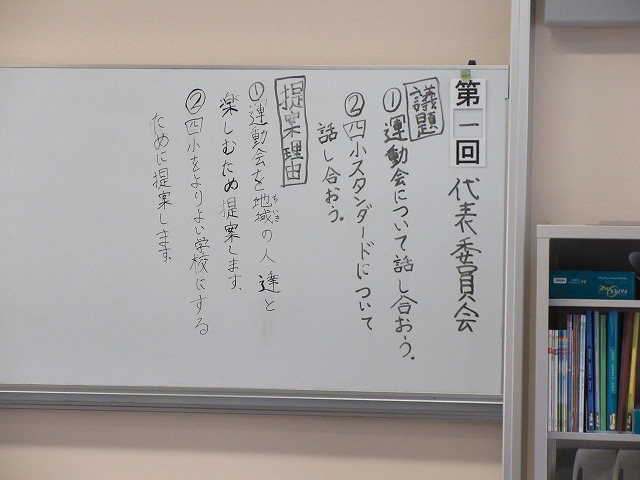 第一回 代表委員会
議題
①運動会について話し合おう。
②四小スタンダードについて
話し合おう。
提案理由
①運動会を地域の人達と
ちいき
楽しむため提案します。
②四小をよりよい学校にする
ために提案します。